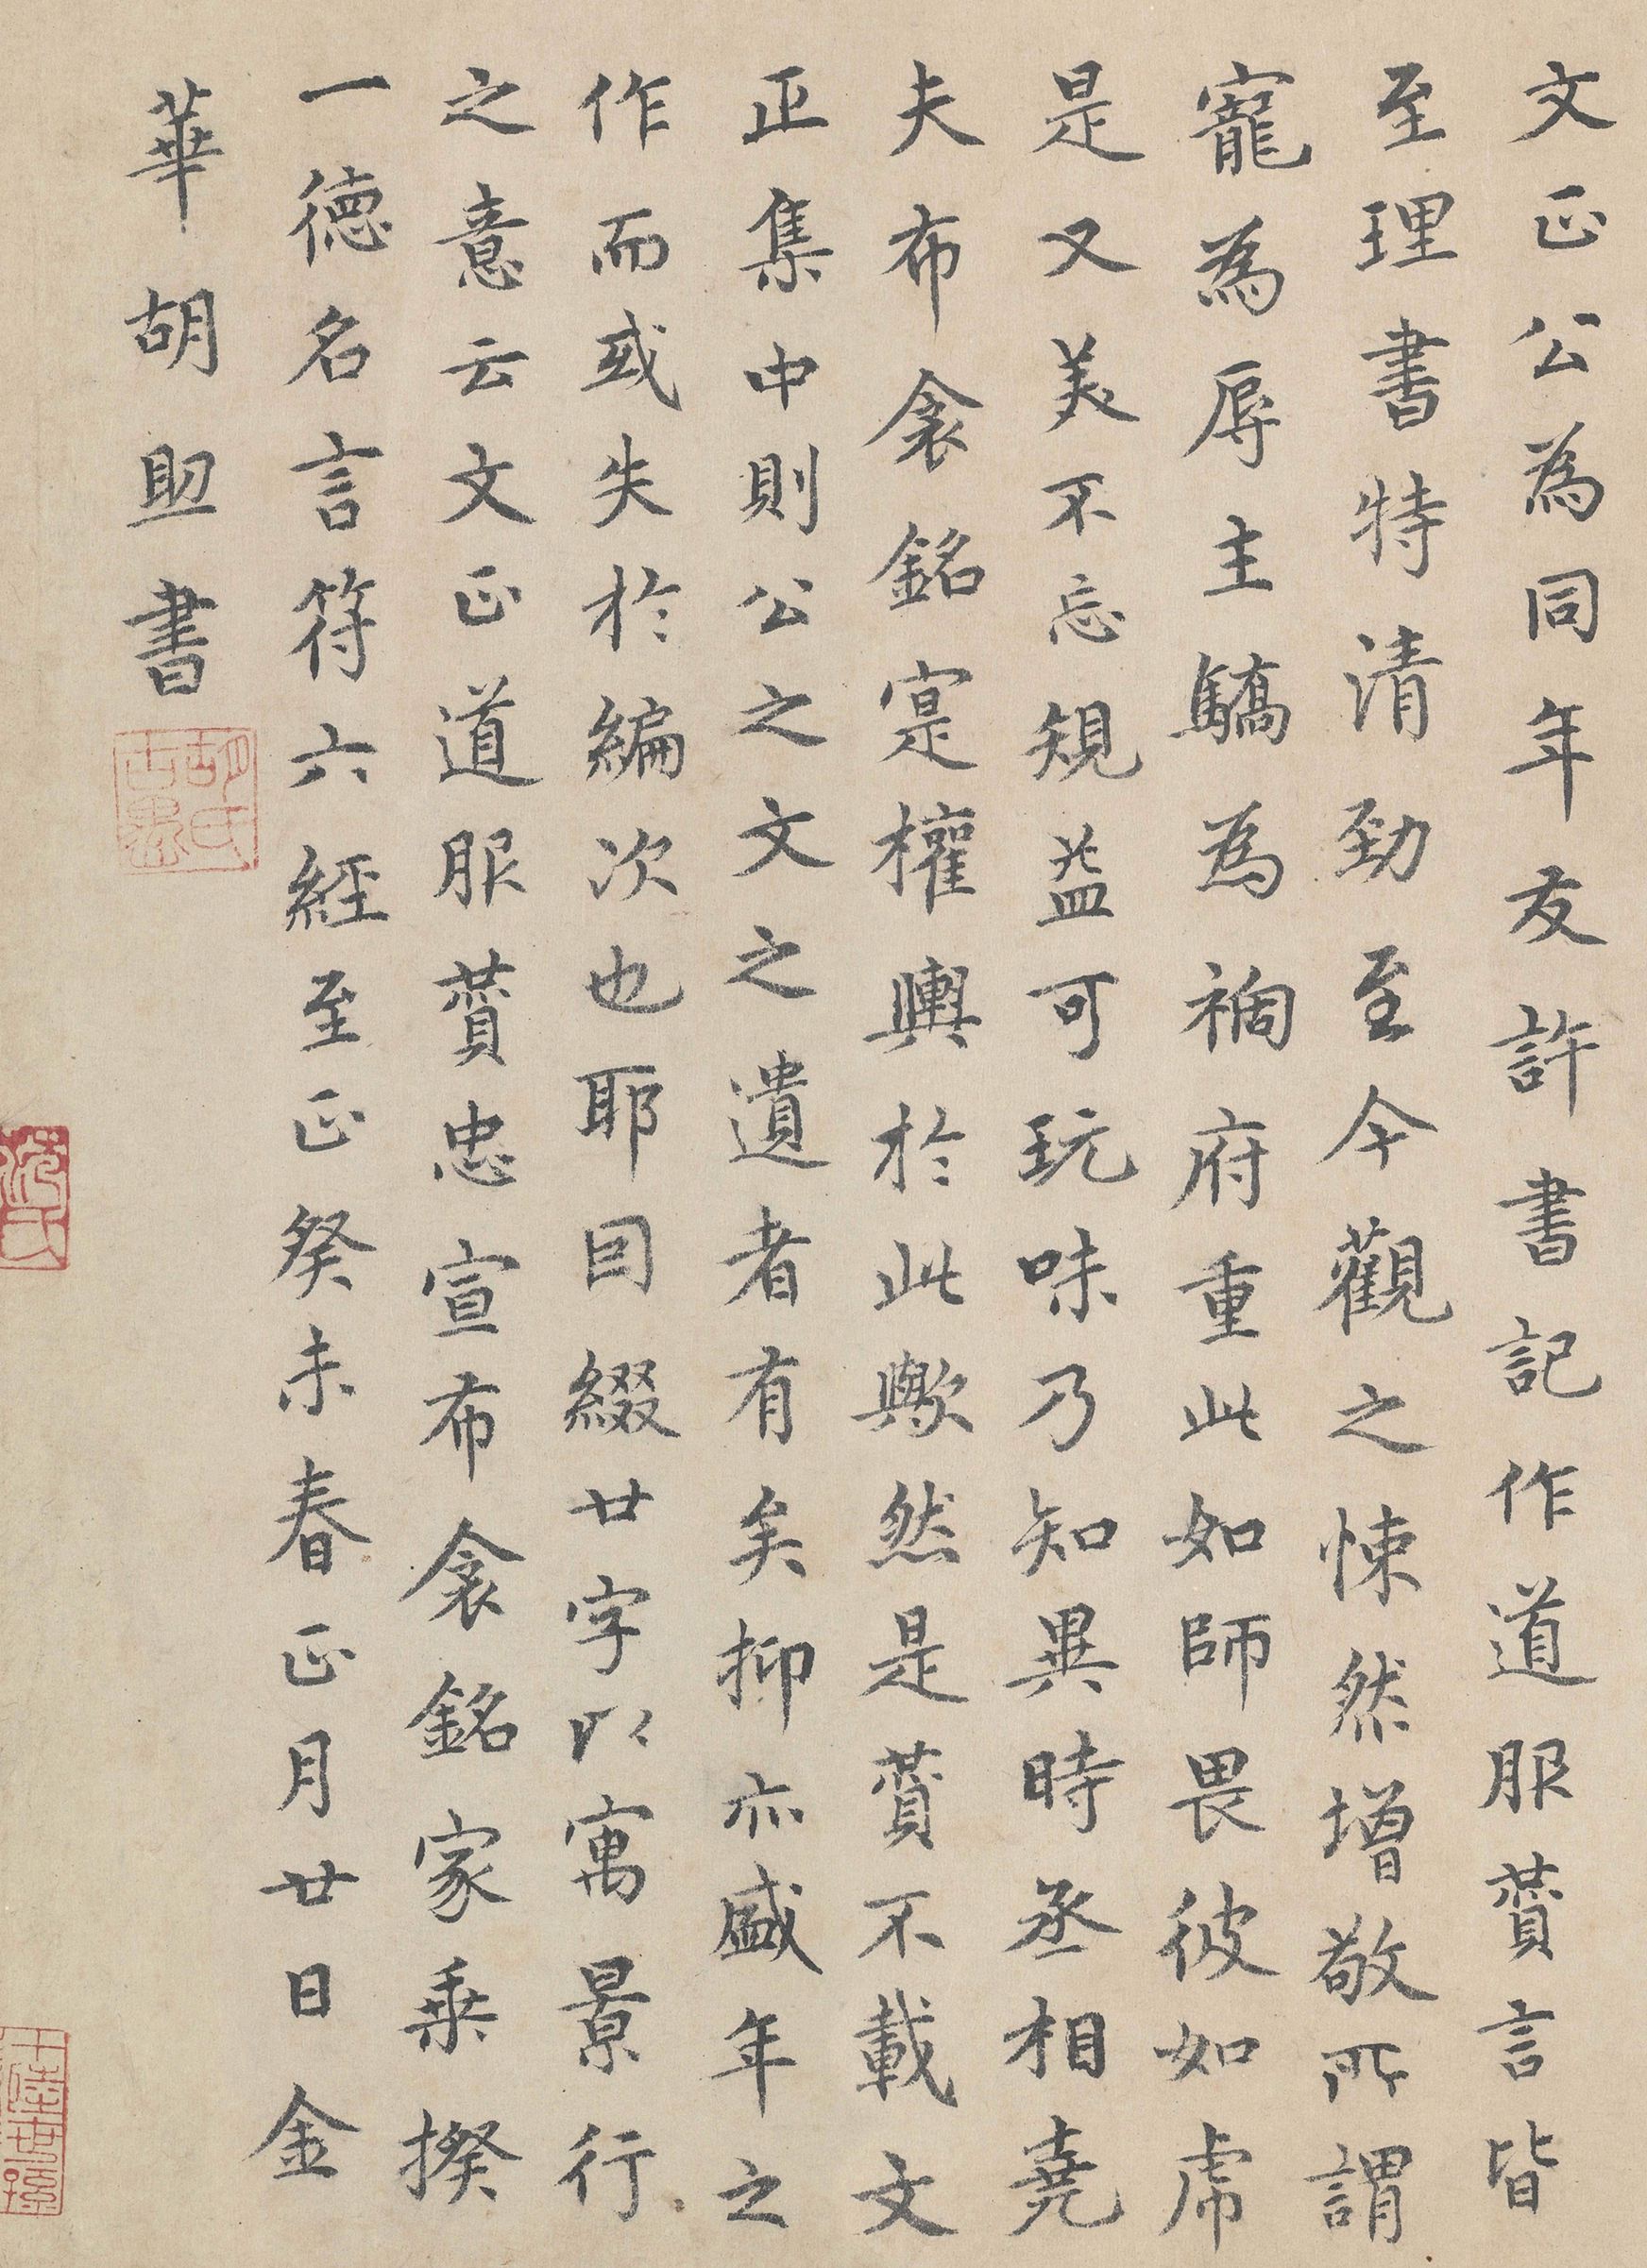 文正公為同年友許書記作道服贊言皆
至理書特清勁至今觀之悚然增敬所謂
寵為辱主驕為禍府重此如師畏彼如虎
是又美不忘規益可玩味乃知異時丞相堯
夫布衾銘寔權輿於此歟然是贊不載文
正集中則公之文之遺者有矣抑亦盛年之
作而或失於編次也耶因綴廿字以寓景行
之意云文正道服贊忠宣布衾銘家乘揆
一德名言符六經至正癸未春正月廿日金
華胡助書
胡氏古愚
沈氏